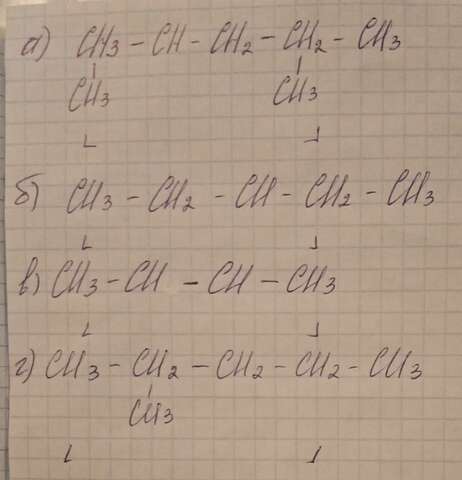 а) CH3 - CH - CH2 - CH2 - CH3
CH3 CH3
б) CH3 - CH2 - CH - CH2 - CH3
в) CH3 - CH - CH - CH3
г) CH3 - CH2 - CH2 - CH2 - CH3
CH3